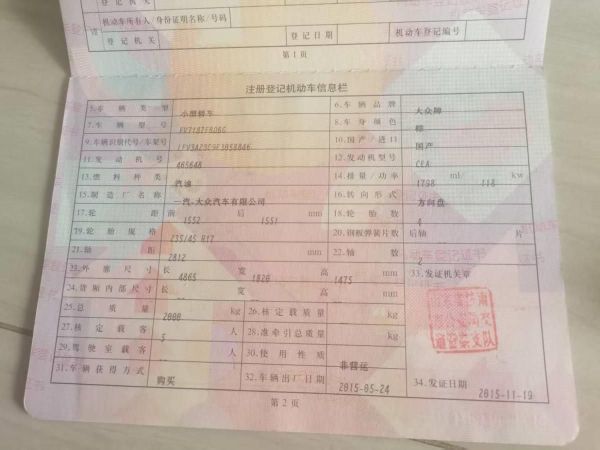 机动车所有人/身份证明名称/号码
登记机关
登记日期
机动车登记编号
第1页
注册登记机动车信息栏
5.车辆类型 小型轿车 6.车辆品牌 大众牌
7.车辆型号 8.车身颜色 棕
9.车辆识别代号/车架号 10.国产/进口 国产
11.发动机号 465648 12.发动机型号 CEA
13.燃料种类 汽油 14.排量/功率 1798 ml/ 118 kw
15.制造厂名称 一汽-大众汽车有限公司 16.转向形式 方向盘
17.轮距 前 1552 后 1551 mm 18.轮胎数 4
19.轮胎规格 235/45 R17 20.钢板弹簧片数 后轴 片
21.轴距 2812 mm 22.轴数 2
23.外廓尺寸 长 4865 宽 1820 高 1475 mm 33.发证机关章
24.货厢内部尺寸 长 宽 高 mm
25.总质量 2000 kg 26.核定载质量 kg
27.核定载客 5 人 28.准牵引总质量 kg
29.驾驶室载客 人 30.使用性质 非营运
31.车辆获得方式 购买 32.车辆出厂日期 2015-05-24 34.发证日期 2015-11-19
第2页